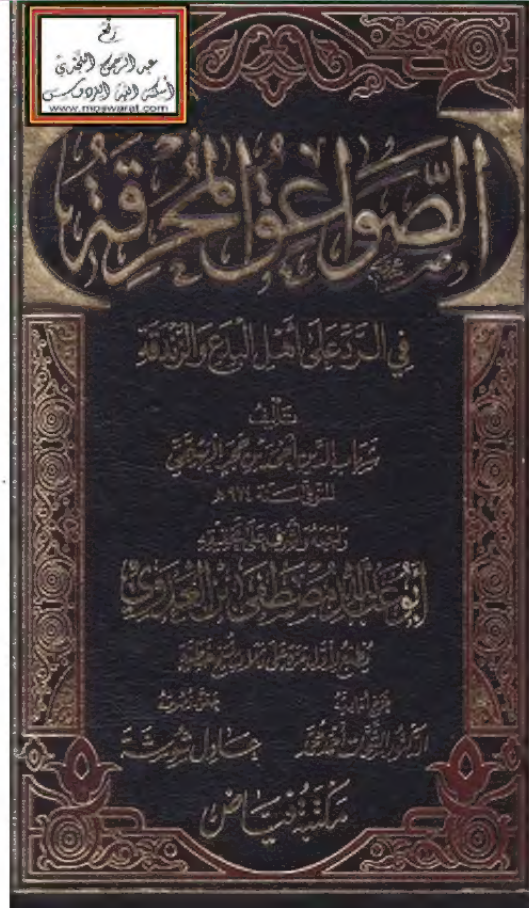 رفع
عبد الرحمن النجدي
أسكنه الله الفردوس
www.moswarat.com
الصواعق المحرقة
في الرد على أهل البدع والزندقة
تأليف
شهاب الدين أحمد بن حجر الهيتمي
المتوفى سنة ٩٧٤ هـ
راجعه وأشرف على تحقيقه
أبو عبد الله مصطفى بن العدوي
يطبع لأول مرة على ثلاث نسخ خطية
خرج أحاديثه
حقق نصوصه
الشحات أحمد محمد
عادل شوشة
مكتبة فياض